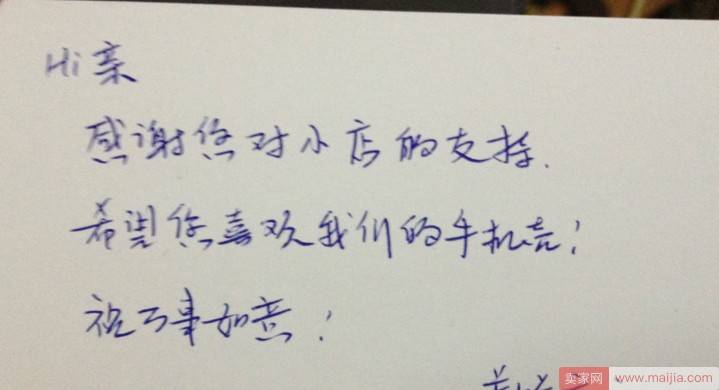 Hi 亲
感谢您对小店的支持.
希望您喜欢我们的手机壳!
祝万事如意!
卖家网 www.maijia.com